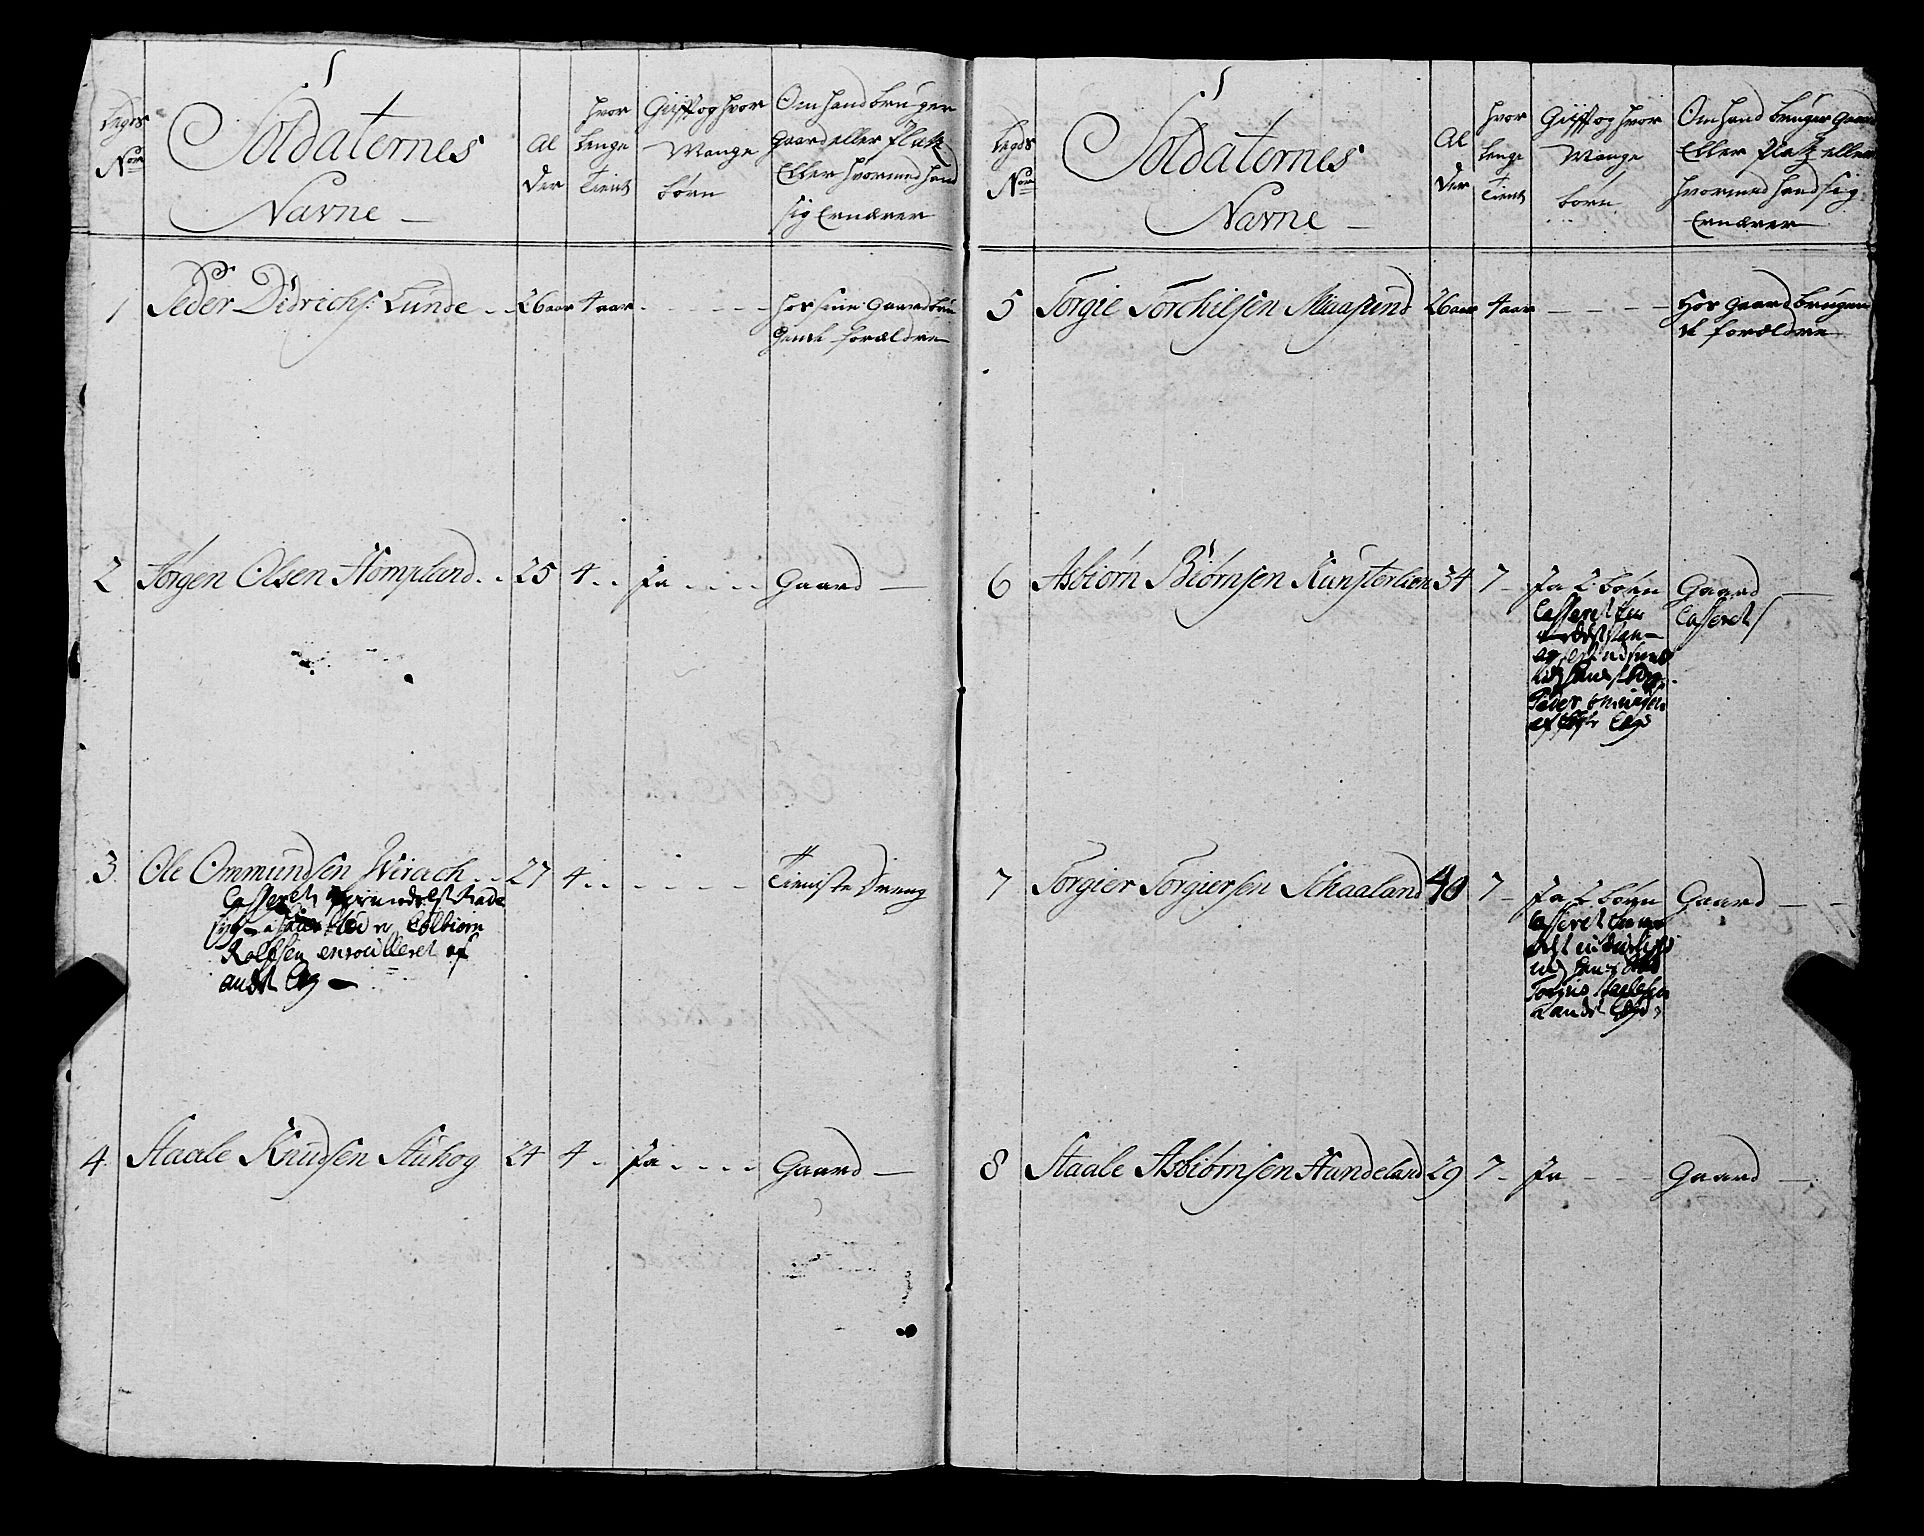 Legds
Nor
Soldaternes
Navne
Al
der
hvor
lenge
tient
Gift og hvor
Mange
børn
Om hand bruger
gaard eller Platz
Eller hvormed hand
sig Ernærer
1 Peder Didrichs: Lunde 26 aar 4 aar hos sine gaardbru
gende forældre
2 Jørgen Olsen Hompland 25 4 Ja Gaard
3 Ole Ommundsen Wirach 27 4 Tieniste Dreng
Casseret
Colbiørn
Rolfsen enroulleret af
andet Leg
4 Staale Knudsen Stuhog 24 4 Ja Gaard
Legds
Nor
Soldaternes
Navne
Al
der
hvor
lenge
tient
Gift og hvor
Mange
børn
Om hand bruger gaard
Eller Platz eller
hvormed hand sig
Ernærer
5 Torgie Torchilsen Miaasund 26 aar 4 aar Hos gaard brugen
de forældre
6 Asbiørn Biørnsen Kunsterlien 34 7 Ja 2 børn Gaard
Casseret Casseret
Peder
7 Torgier Torgiersen Schaaland 40 7 Ja 2 børn Gaard
Casseret
8 Staale Asbiørnsen Hundeland 29 7 Ja Gaard